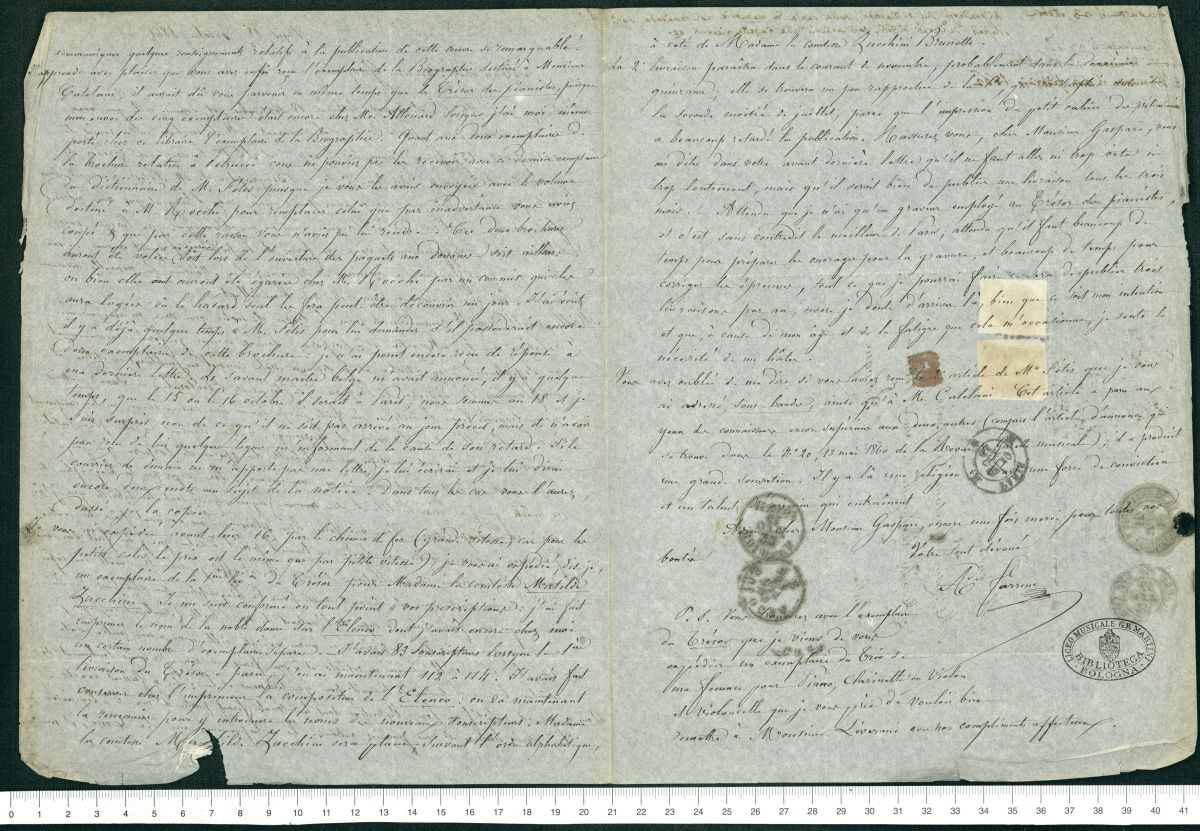 communiquer quelques renseignements relatifs à la publication de cette œuvre si remarquable!
J'apprends avec plaisir que vous avez enfin reçu l'exemplaire de la Biographie destiné à Monsieur
Catelani; il aurait dû vous parvenir en même temps que le Trésor des pianistes, puisque
mon envoi des cinq exemplaires était encore chez Mr. Allouard lorsque j'ai moi-même
porté chez ce libraire l'exemplaire de la Biographie. Quant aux deux exemplaires de
la brochure relative à vous ne pouviez pas les recevoir avec ce dernier exemplaire
du dictionnaire de M. Fétis puisque je vous les avais envoyés avec le volume
destiné à M. Rocchi pour remplacer celui que par inadvertance vous aviez
coupé & que par cette raison vous n'aviez pu lui rendre. Ces deux brochures
auront été volées soit lors de l'ouverture des paquets aux douanes soit ailleurs
ou bien elles auront été égarées chez M. Rocchi par un commis qui les
aura et le hasard seul les fera peut être découvrir un jour. J'ai écrit
il y a déjà quelque temps à M. Fétis pour lui demander s'il posséderait encore
deux exemplaires de cette brochure; je n'ai point encore reçu de réponse à
ma dernière lettre. Le savant maître belge m'avait annoncé, il y a quelque
temps, que le 15 ou le 16 octobre il serait à Paris; nous sommes au 18 et je
suis surpris non de ce qu'il ne soit pas arrivé au jour précis, mais de n'avoir
pas reçu de lui quelques lignes m'informant de la cause de son retard. Si le
courrier de demain ne m'apporte pas une lettre je lui écrirai et je lui dirai
encore deux mots au sujet de la notice. Dans tous les cas vous l'aurez
dussé-je la copier.
Je vous ai expédié avant hier 16, par le chemin de fer (grande vitesse) car pour les
petits colis, le prix est le même que par petite vitesse) je vous ai expédié, dis-je,
un exemplaire de la 1re livon du Trésor pour Madame la comtesse Matilde
Zucchini. Je me suis conformé en tout point à vos prescriptions: j'ai fait
imprimer le nom de la noble dame sur l'Elenco dont j'avais encore chez moi
un certain nombre d'exemplaires séparés. J'avais 83 souscripteurs lorsque la 1re
livraison du Trésor a paru; j'en ai maintenant 112 à 114. J'avais fait
conserver chez l'imprimeur la composition de l'Elenco; on va maintenant
la remanier pour y introduire les noms des nouveaux souscripteurs. Madame
la comtesse Matilde Zucchini sera placée, suivant l'ordre alphabétique,
à coté de Madame la comtesse Zucchini Brunotte.
La 2e livraison paraîtra dans le courant de novembre, probablement dans la
quinzaine; elle se trouvera un peu rapprochée de la 1re, qui n'a paru que dans
la seconde moitié de juillet, parce que l'impression du petit cahier des préliminaires
a beaucoup retardé la publication. Rassurez vous, cher Monsieur Gaspari, vous
me dites dans votre avant dernière lettre qu'il ne faut aller ni trop vite ni
trop lentement, mais qu'il serait bien de publier une livraison tous les trois
mois. Attendu que je n'ai qu'un graveur employé au Trésor des pianistes,
et c'est sans contredit le meilleur de Paris; attendu qu'il faut beaucoup de
temps pour préparer les ouvrages pour la gravure, et beaucoup de temps pour
corriger les épreuves, tout ce que je pourrai faire sera de publier trois
livraisons par an, encore je doute d'arriver là, bien que ce soit mon intention
et que, à cause de mon âge et de la fatigue que cela m'occasionne, je sente la
nécessité de me hâter.
Vous avez oublié de me dire si vous aviez reçu l'article de Mr Fétis que je vous
ai adressé sous bande, ainsi qu'à M. Catelani. Cet article a paru aux
yeux des connaisseurs encor supérieur aux deux autres (compris l'article d'annonce qui
se trouve dans le No 20, 13 mai 1860 de la Revue et Gazette musicale); il a produit
une grande sensation. Il y a là une une force de conviction
et un talent d'écrivain qui entraînent.
Adieu, cher Monsieur Gaspari, encore une fois merci pour toutes vos
bontés.
Votre tout dévoué
Ade Farrenc
P. S. Vous trouverez avec l'exemplaire
du Trésor que je viens de vous
expédier un exemplaire du Trio de
ma femme pour Piano, Clarinette ou Violon
et violoncelle que je vous prie de vouloir bien
remettre à Monsieur Liverani avec nos compliments affectueux.
LICEO MUSICALE G.B. MARTINI
BIBLIOTECA
BOLOGNA
0 1 2 3 4 5 6 7 8 9 10 11 12 13 14 15 16 17 18 19 20 21 22 23 24 25 26 27 28 29 30 31 32 33 34 35 36 37 38 39 40 41